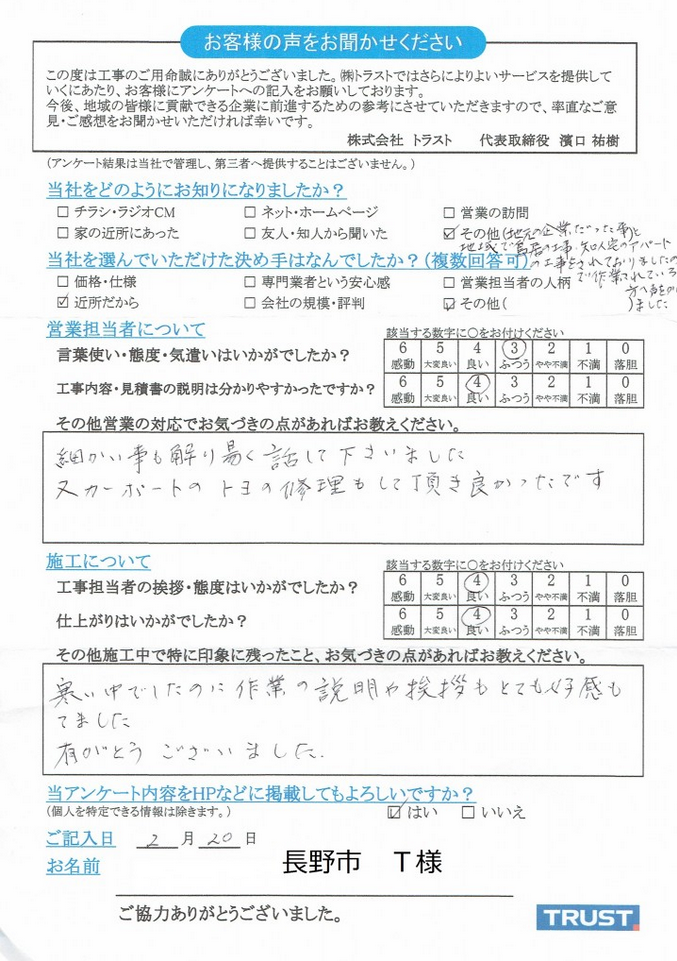 お客様の声をお聞かせください
この度は工事のご用命誠にありがとうございました。㈱トラストではさらによりよいサービスを提供して
いくにあたり、お客様にアンケートへの記入をお願いしております。
今後、地域の皆様に貢献できる企業に前進するための参考にさせていただきますので、率直なご意
見・ご感想をお聞かせいただければ幸いです。
株式会社 トラスト 代表取締役 濱口 祐樹
(アンケート結果は当社で管理し、第三者へ提供することはございません。)
当社をどのようにお知りになりましたか?
☐ チラシ・ラジオCM ☐ ネット・ホームページ ☐ 営業の訪問
☐ 家の近所にあった ☐ 友人・知人から聞いた ☑ その他(地元の企業だった事と
地域で 工事 知人宅のアパート
の工事をされておりましたの
で作業されている
方へ声をか
)ました
当社を選んでいただけた決め手はなんでしたか?(複数回答可)
☐ 価格・仕様 ☐ 専門業者という安心感 ☐ 営業担当者の人柄
☑ 近所だから ☐ 会社の規模・評判 ☑ その他(
営業担当者について
該当する数字に○をお付けください
言葉使い・態度・気遣いはいかがでしたか?
6 5 4 3 2 1 0
感動 大変良い 良い ふつう やや不満 不満 落胆
工事内容・見積書の説明は分かりやすかったですか?
6 5 4 3 2 1 0
感動 大変良い 良い ふつう やや不満 不満 落胆
その他営業の対応でお気づきの点があればお教えください。
細かい事も解り易く話して下さいました
又カーポートのトヨの修理もして頂き良かったです
施工について
該当する数字に○をお付けください
工事担当者の挨拶・態度はいかがでしたか?
6 5 4 3 2 1 0
感動 大変良い 良い ふつう やや不満 不満 落胆
仕上がりはいかがでしたか?
6 5 4 3 2 1 0
感動 大変良い 良い ふつう やや不満 不満 落胆
その他施工中で特に印象に残ったこと、お気づきの点があればお教えください。
寒い中でしたのに作業の説明や挨拶もとても好感も
てました
有がとうございました.
当アンケート内容をHPなどに掲載してもよろしいですか?
(個人を特定できる情報は除きます。) ☑ はい ☐ いいえ
ご記入日 2 月 20 日
お名前 長野市 T様
ご協力ありがとうございました。
TRUST.